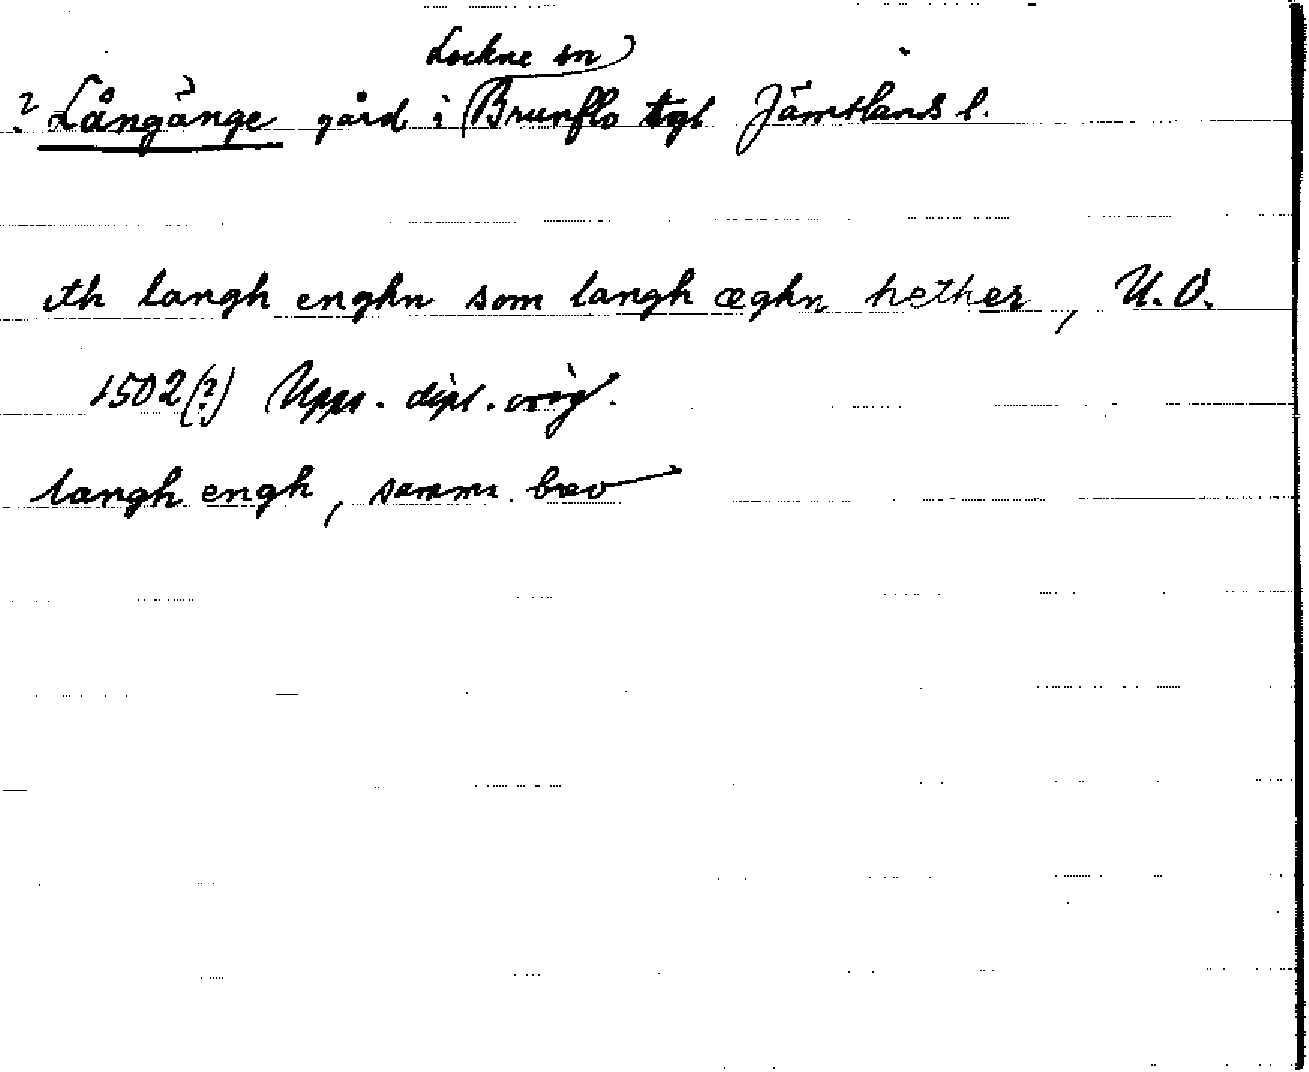 Lockne sn
? Långänge gård i Brunflo tgl Jämtlands l.
ith langh enghn som langh æghn hether, U.O.
1502(?) Upps. dipl. orig.
langh engh, samma brev